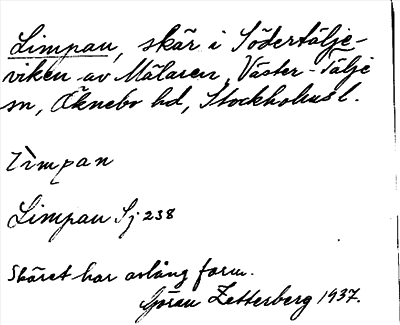 Limpan, skär i Södertälje-
viken av Mälaren, Väster-Tälje
sn, Öknebo hd, Stockholms l.
Lìmpan
Limpan Sj 238
Skäret har avlång form.
Göran Zetterberg 1937.